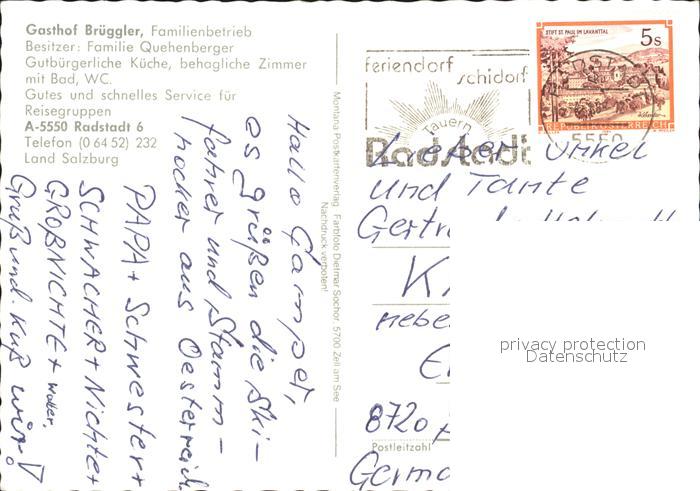 Gasthof Brüggler, Familienbetrieb
Besitzer: Familie Quehenberger
Gutbürgerliche Küche, behagliche Zimmer
mit Bad, WC.
Gutes und schnelles Service für
Reisegruppen
A-5550 Radstadt 6
Telefon (0 64 52) 232
Land Salzburg
Hallo
es grüßen die Ski-
fahrer und Stamm-
hocker aus Oesterreich
PAPA + Schwester +
SCHWACHER + Nichte +
GROßNICHTE + Walter.
Gruß und Kuß wir!
Montana Postkartenverlag Farbfoto Dietmar Sochor, 5700 Zell am See
Nachdruck verboten!
feriendorf
schidorf
tauern
Radstadt
STIFT ST. PAUL IM LAVANTTAL
5s
REPUBLIK ÖSTERREICH
5550
Lieber Onkel
und Tante
Gertr
K
Nebe
E
8720
Postleitzahl
Germa
privacy protection
Datenschutz